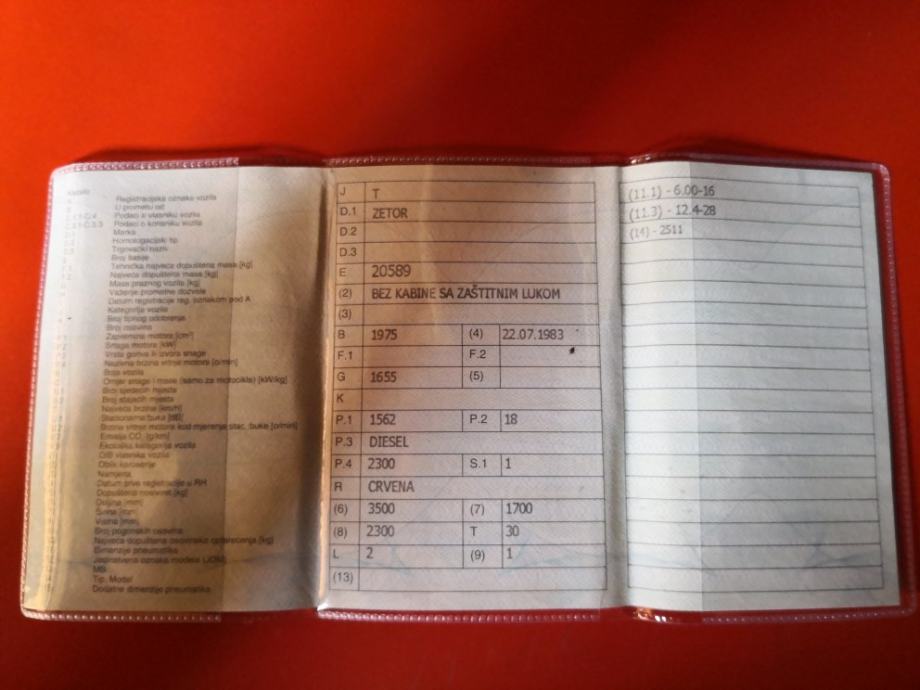 Registracijska oznaka vozila
U prometu od
Podaci o vlasniku vozila
Podaci o korisniku vozila
Marka
Homologacijski tip
Trgovački naziv
Broj šasije
Tehnička najveća dopuštena masa [kg]
Najveća dopuštena masa [kg]
Masa praznog vozila [kg]
Važenje prometne dozvole
Datum registracije reg. oznakom pod A
Kategorija vozila
Broj tipnog odobrenja
Broj osovina
Zapremina motora [cm³]
Snaga motora [kW]
Vrsta goriva ili izvora snage
Nazivna brzina vrtnje motora [o/min]
Boja vozila
Omjer snage i mase (samo za motocikle) [kW/kg]
Broj sjedećih mjesta
Broj stajaćih mjesta
Najveća brzina [km/h]
Stacionarna buka [dB]
Brzina vrtnje motora kod mjerenja stac. buke [o/min]
Emisija CO₂ [g/km]
Ekološka kategorija vozila
OIB vlasnika vozila
Oblik karoserije
Namjena
Datum prve registracije u RH
Dopuštena nosivost [kg]
Duljina [mm]
Širina [mm]
Visina [mm]
Broj pogonskih osovina
Najveće dopušteno osovinsko opterećenje [kg]
Dimenzije pneumatika
MB
Tip, Model
Dodatne dimenzije pneumatika
J T
D.1 ZETOR
D.2
D.3
E 20589
(2) BEZ KABINE SA ZAŠTITNIM LUKOM
(3)
B 1975 (4) 22.07.1983
F.1 F.2
G 1655 (5)
K
P.1 1562 P.2 18
P.3 DIESEL
P.4 2300 S.1 1
R CRVENA
(6) 3500 (7) 1700
(8) 2300 T 30
L 2 (9) 1
(13)
(11.1) - 6.00-16
(11.3) - 12.4-28
(14) - 2511